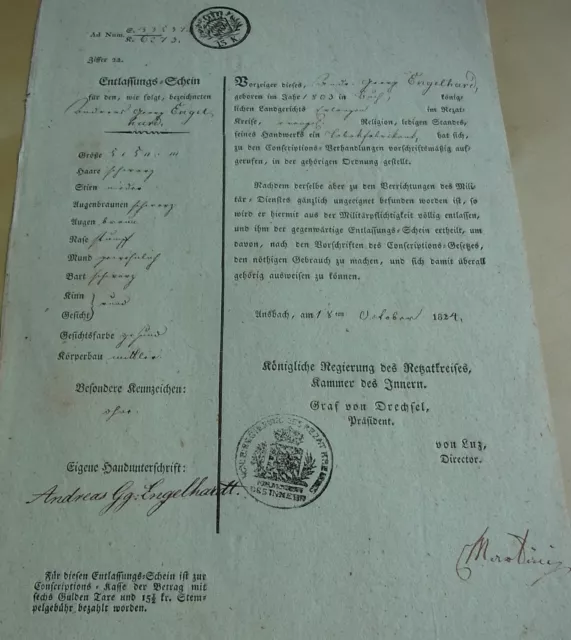 Ad Num.
15 K
Ziffer 22.
Entlassungs-Schein
für den, wie folgt, bezeichneten
Andreas Georg Engel-
hard.
Größe
Haare schwarz
Stirn nieder
Augenbraunen schwarz
Augen braun
Nase stumpf
Mund gewöhnlich
Bart schwarz
Kinn
Gesicht } rund
Gesichtsfarbe gesund
Körperbau mittler
Besondere Kennzeichen:
ohne
Eigene Handunterschrift:
Andreas Gg: Engelhardt.
Für diesen Entlassungs-Schein ist zur
Conscriptions-Kasse der Betrag mit
sechs Gulden Taxe und 15½ kr. Stem-
pelgebühr bezahlt worden.
Vorzeiger dieses, Georg Engelhard,
geboren im Jahr 1803 in königli-
chen Landgerichts Erlangen im Rezat-
Kreise, Religion, ledigen Standes,
seines Handwerks ein hat sich,
zu den Conscriptions-Verhandlungen vorschriftsmäßig auf-
gerufen, in der gehörigen Ordnung gestellt.
Nachdem derselbe aber zu den Verrichtungen des Mili-
tär-Dienstes gänzlich ungeeignet befunden worden ist, so
wird er hiermit aus der Militärpflichtigkeit völlig entlassen,
und ihm der gegenwärtige Entlassungs-Schein ertheilt, um
davon, nach den Vorschriften des Conscriptions-Gesetzes,
den nöthigen Gebrauch zu machen, und sich damit überall
gehörig ausweisen zu können.
Ansbach, am 18ten October 1824.
Königliche Regierung des Rezatkreises,
Kammer des Innern.
Graf von Drechsel,
Präsident.
von Luz,
Director.
DES INNERN